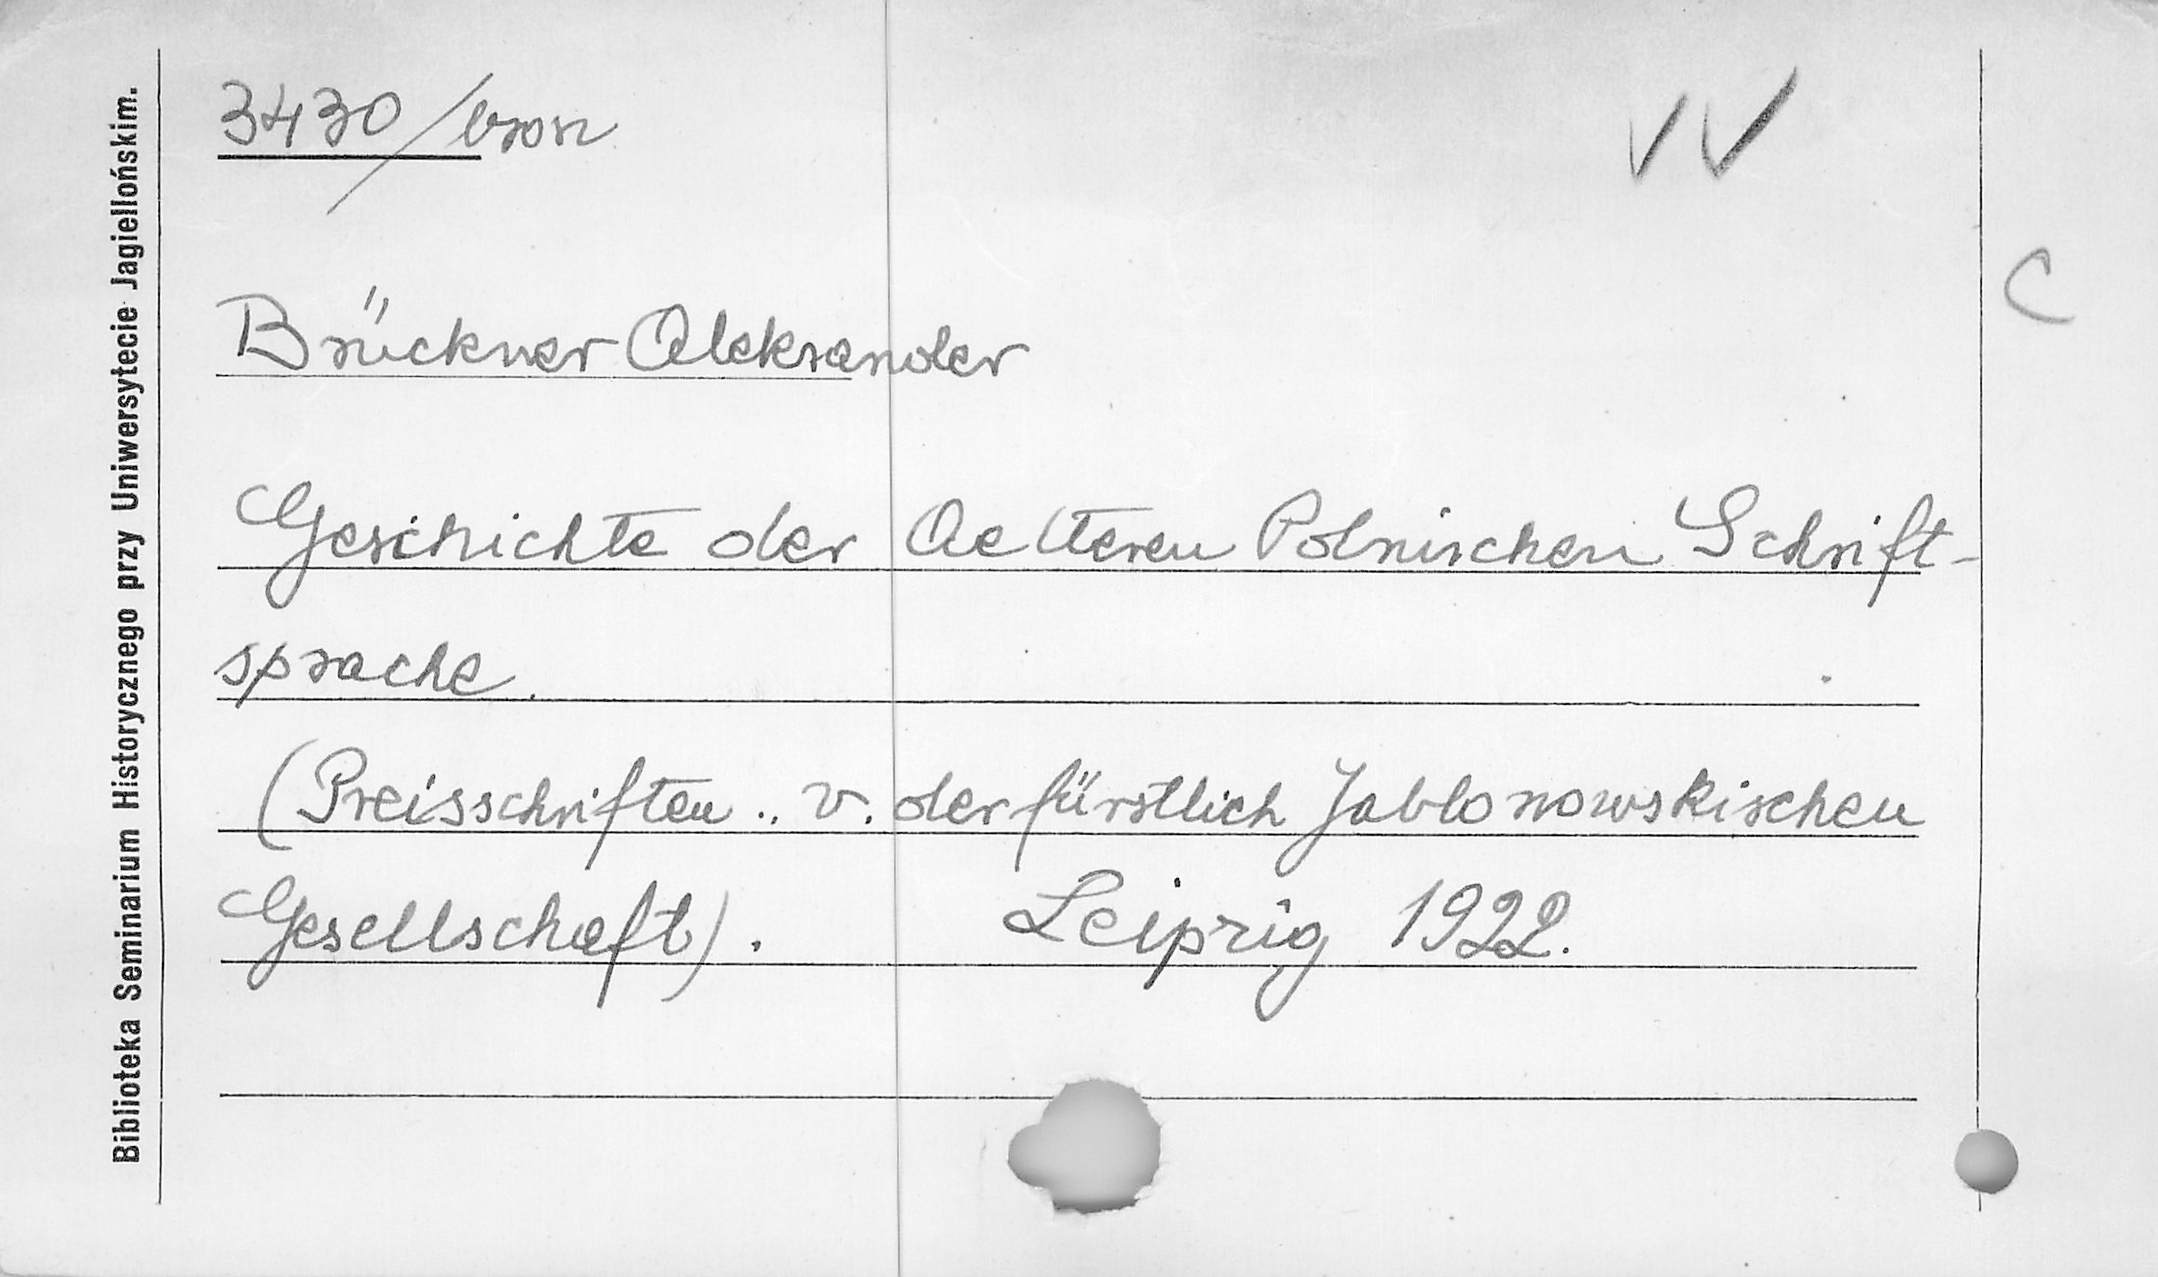 Biblioteka Seminarium Historycznego przy Uniwersytecie Jagiellońskim.
3430/bron
Brückner Aleksander
Geschichte der Aelteren Polnischen Schrift-
sprache.
(Preisschriften .. v. der fürstlich Jablonowskischen
Gesellschaft). Leipzig 1922.
C